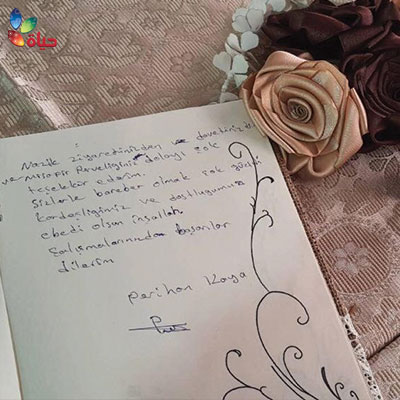 حياة
Nazik ziyaretinizden ve davetiniz
ve Misafir Perverliğiniz dolayı çok
teşekkür ederim.
Sizlerle baraber olmak çok güzeldi
Kardeşliğimiz ve dostluğumuz
ebedi olsun inşallah.
Çalışmalarınızda başarılar
dilerim
Perihan Kaya